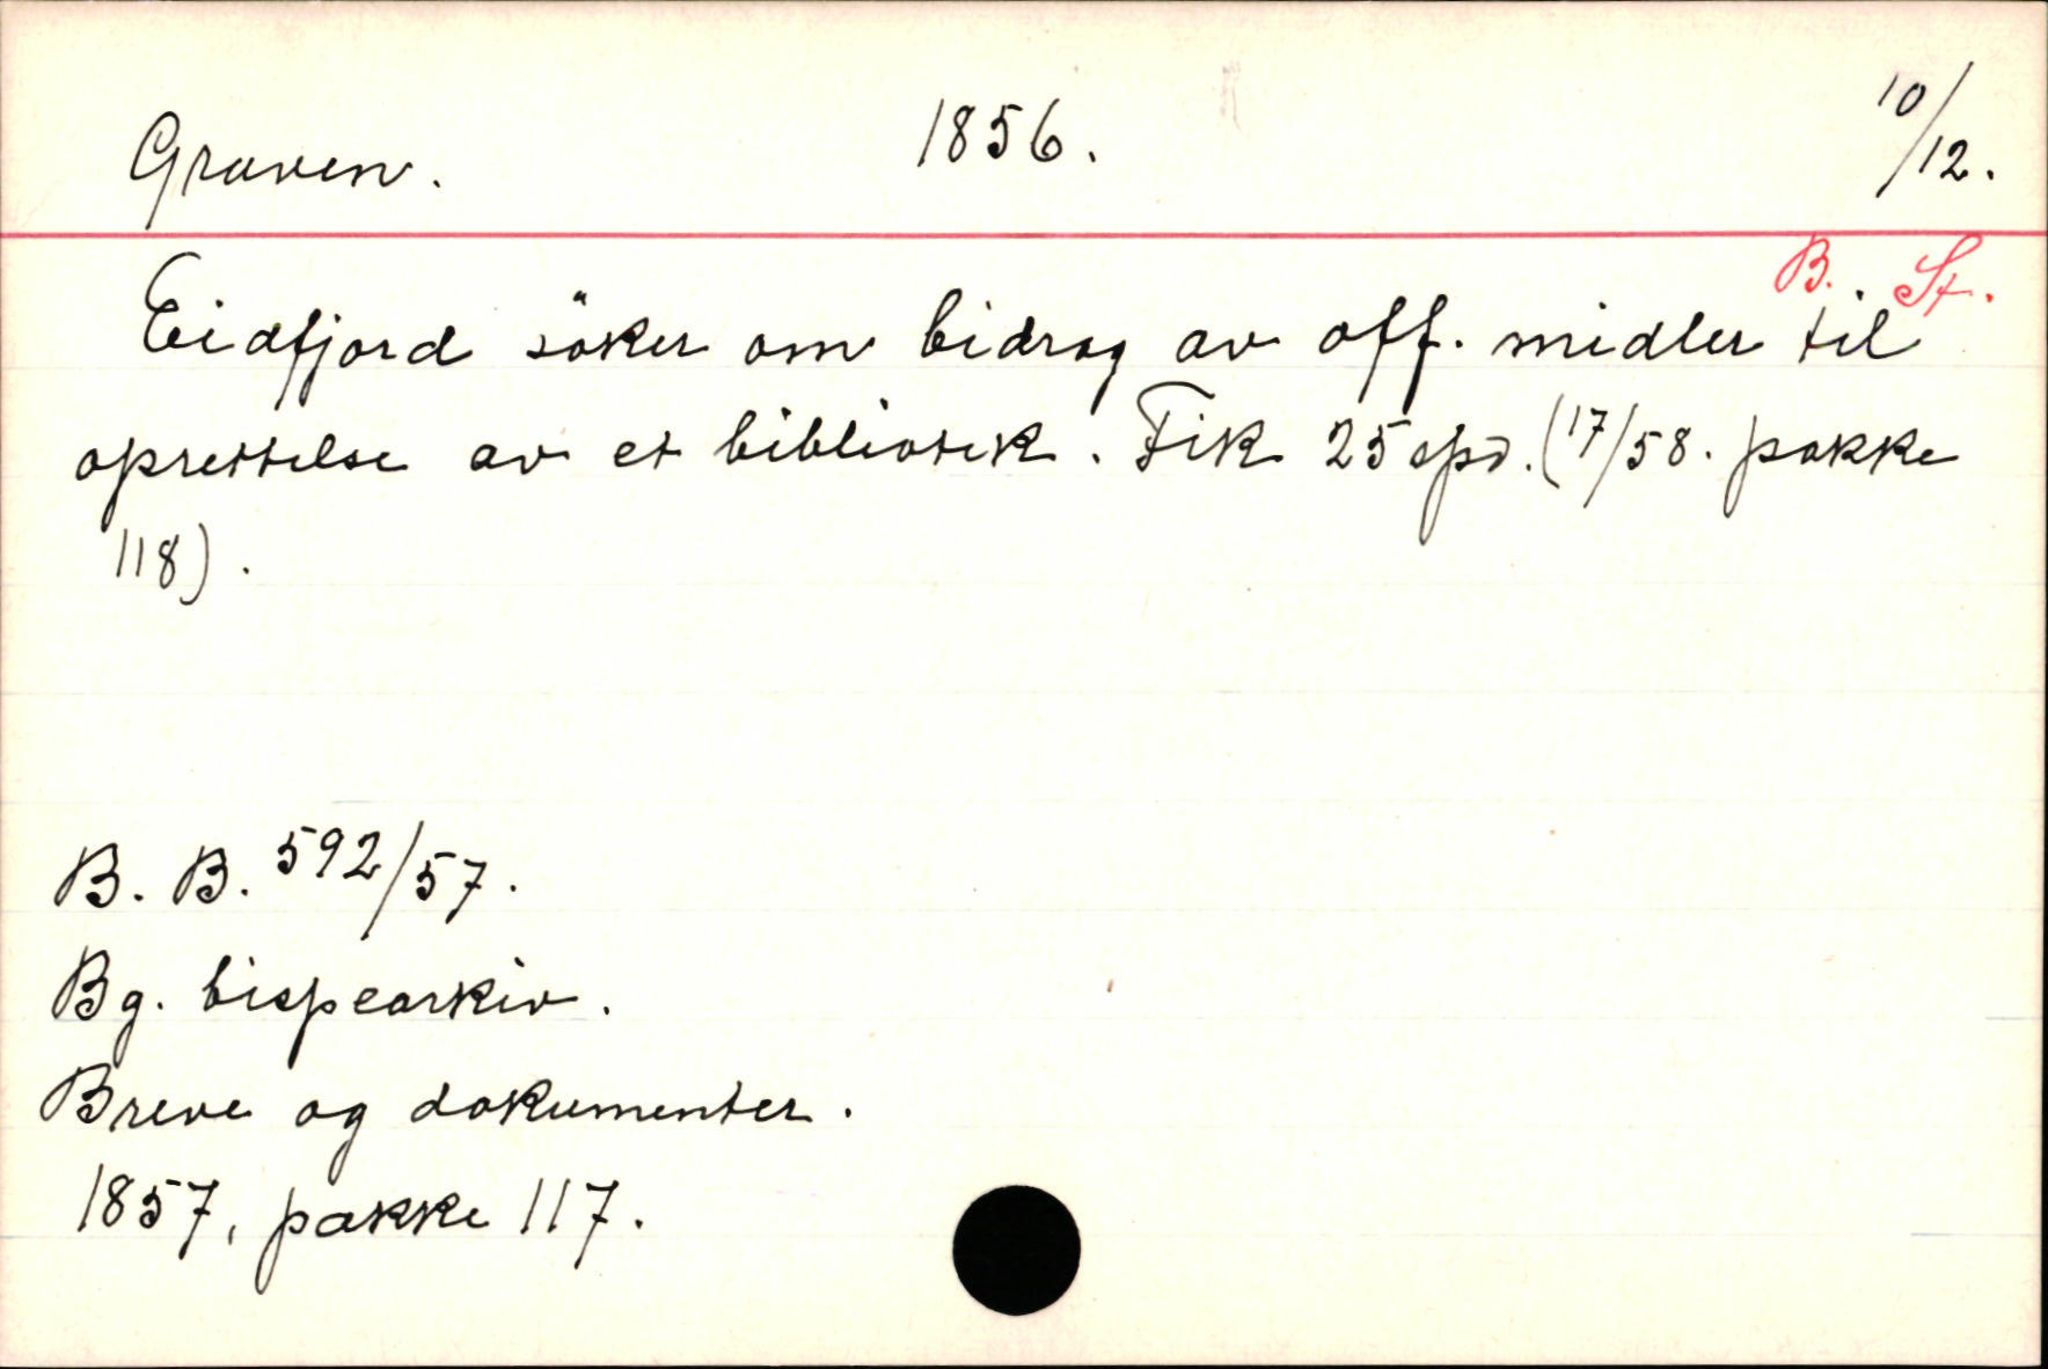 Graven. 1856. 10/12.
B. St.
Eidfjord söker om bidrag av off. midler til
oprettelse av et bibliotek. Fik 25 spd. (17/58. pakke
118).
B. B. 592/57.
Bg. bispearkiv.
Breve og dokumenter.
1857, pakke 117.